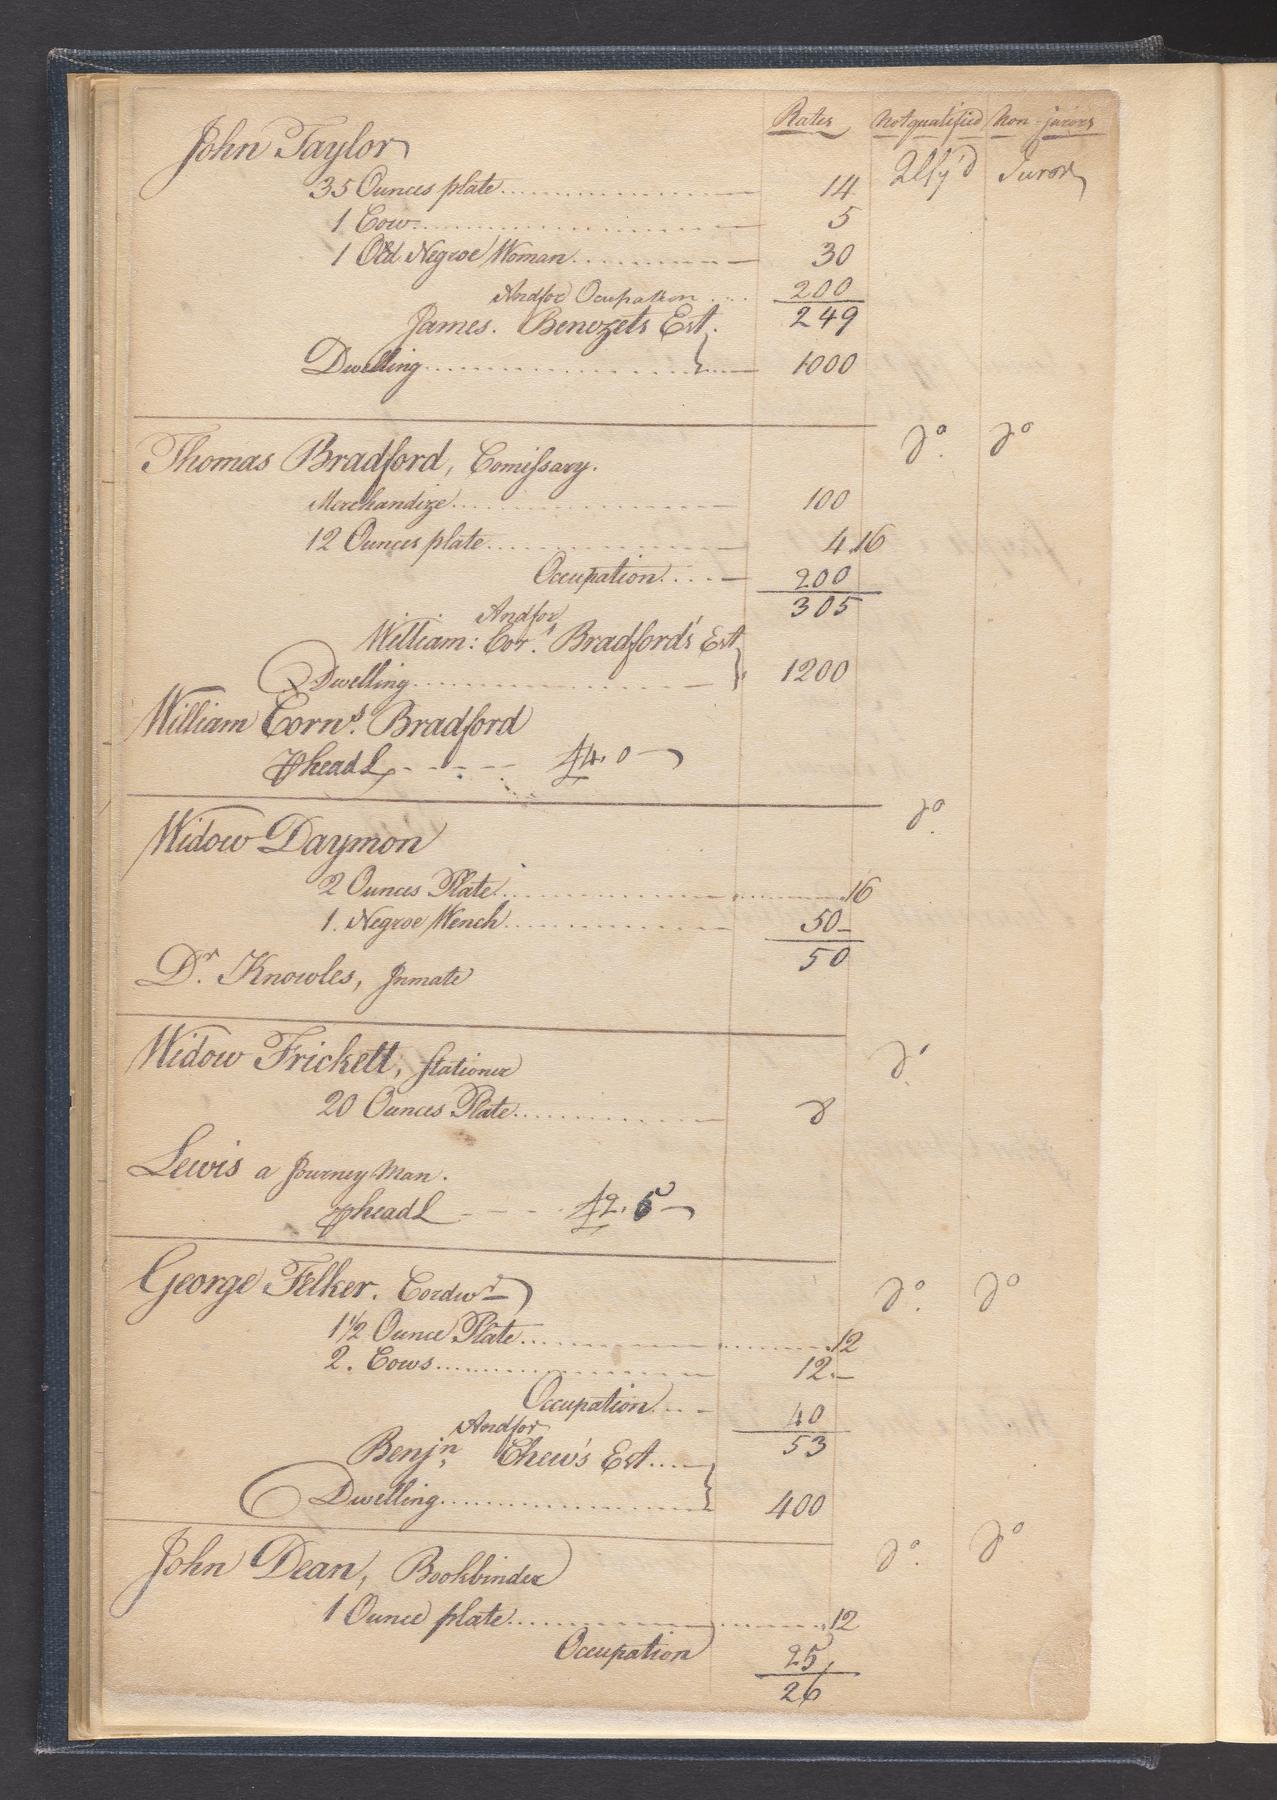 Rates Notqualified Non-jurors
John Taylor Qlfy'd Juror
35 Ounces plate 14
1 Cow 5
1 Old Negroe Woman 30
Andfor Ocupation 200
249
James. Benezets Est.
Dwelling 1000
Thomas Bradford, Comissary. Do. Do
Merchandize 100
12 Ounces plate 4.16
Occupation 200
305
Andfor
William: Cor.s Bradford's Est
Dwelling 1200
William Corns. Bradford
P head L 44.0
Widow Daymon Do.
2 Ounces Plate .16
1. Negroe Wench 50
50
Dr. Knowles, Inmate
Widow Frickett, Stationer Do.
20 Ounces Plate 8
Lewis a Journey Man.
P head L 42.5
George Felker. Cordwr Do. Do
1 1/2 Ounce Plate .12
2. Cows 12.
Occupation 40
53
Andfor
Benjn, Chew's Est
Dwelling 400
John Dean, Bookbinder Do. Do
1 Ounce plate .12
Occupation 25
26